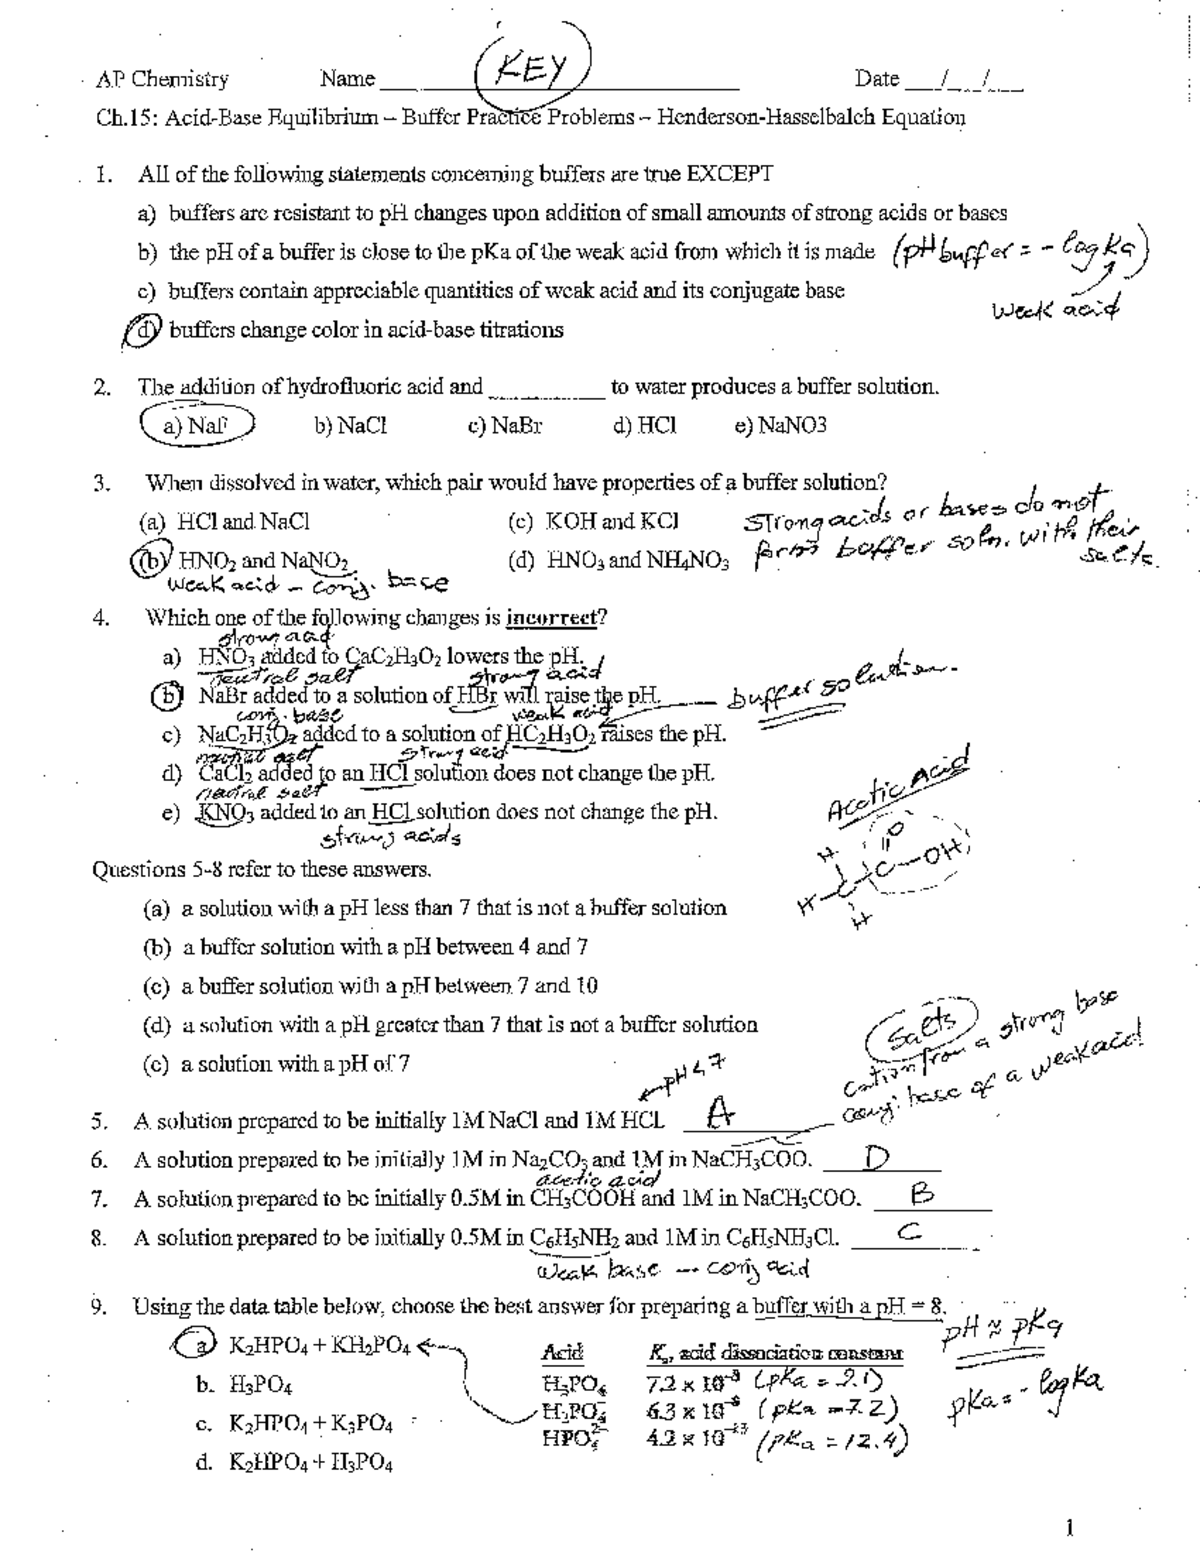 KEY
AP Chemistry Name ______ Date ___/___/___
Ch.15: Acid-Base Equilibrium – Buffer Practice Problems – Henderson-Hasselbalch Equation
1. All of the following statements concerning buffers are true EXCEPT
a) buffers are resistant to pH changes upon addition of small amounts of strong acids or bases
b) the pH of a buffer is close to the pKa of the weak acid from which it is made (pH buffer = - log Ka)
weak acid
c) buffers contain appreciable quantities of weak acid and its conjugate base
d) buffers change color in acid-base titrations
2. The addition of hydrofluoric acid and ______ to water produces a buffer solution.
a) NaF b) NaCl c) NaBr d) HCl e) NaNO3
3. When dissolved in water, which pair would have properties of a buffer solution?
(a) HCl and NaCl (c) KOH and KCl
strong acids or bases do not
form buffer soln. with their
salts.
(b) HNO2 and NaNO2 (d) HNO3 and NH4NO3
weak acid – conj. base
4. Which one of the following changes is incorrect?
strong acid
a) HNO3 added to CaC2H3O2 lowers the pH.
neutral salt strong acid
b) NaBr added to a solution of HBr will raise the pH.
buffer solution.
conj. base weak acid
c) NaC2H3O2 added to a solution of HC2H3O2 raises the pH.
neutral salt strong acid
d) CaCl2 added to an HCl solution does not change the pH.
neutral salt
e) KNO3 added to an HCl solution does not change the pH.
strong acids
Acetic Acid
H O
H C C OH
H
Questions 5-8 refer to these answers.
(a) a solution with a pH less than 7 that is not a buffer solution
(b) a buffer solution with a pH between 4 and 7
(c) a buffer solution with a pH between 7 and 10
(d) a solution with a pH greater than 7 that is not a buffer solution
(e) a solution with a pH of 7
salts
cation from a strong base
conj. base of a weak acid
pH < 7
5. A solution prepared to be initially 1M NaCl and 1M HCL A
6. A solution prepared to be initially 1M in Na2CO3 and 1M in NaCH3COO. D
acetic acid
7. A solution prepared to be initially 0.5M in CH3COOH and 1M in NaCH3COO. B
8. A solution prepared to be initially 0.5M in C6H5NH2 and 1M in C6H5NH3Cl. C
weak base – conj acid
9. Using the data table below, choose the best answer for preparing a buffer with a pH = 8.
pH ≈ pKa
pKa = - log Ka
a. K2HPO4 + KH2PO4
b. H3PO4
c. K2HPO4 + K3PO4
d. K2HPO4 + H3PO4
Acid Ka, acid dissociation constant
H3PO4 7.2 x 10-3 (pKa = 2.1)
H2PO4- 6.3 x 10-8 (pKa = 7.2)
HPO42- 4.2 x 10-13 (pKa = 12.4)
1